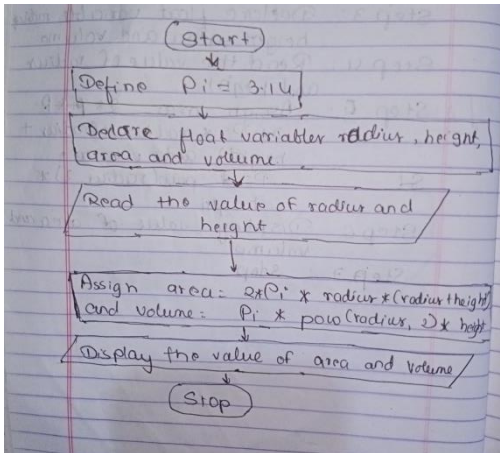 Start
Define Pi = 3.14
Declare float variables radius, height,
area and volume
Read the value of radius and
height
Assign area = 2*Pi * radius * (radius + height)
and volume = Pi * pow(radius, 2) * height
Display the value of area and volume
Stop